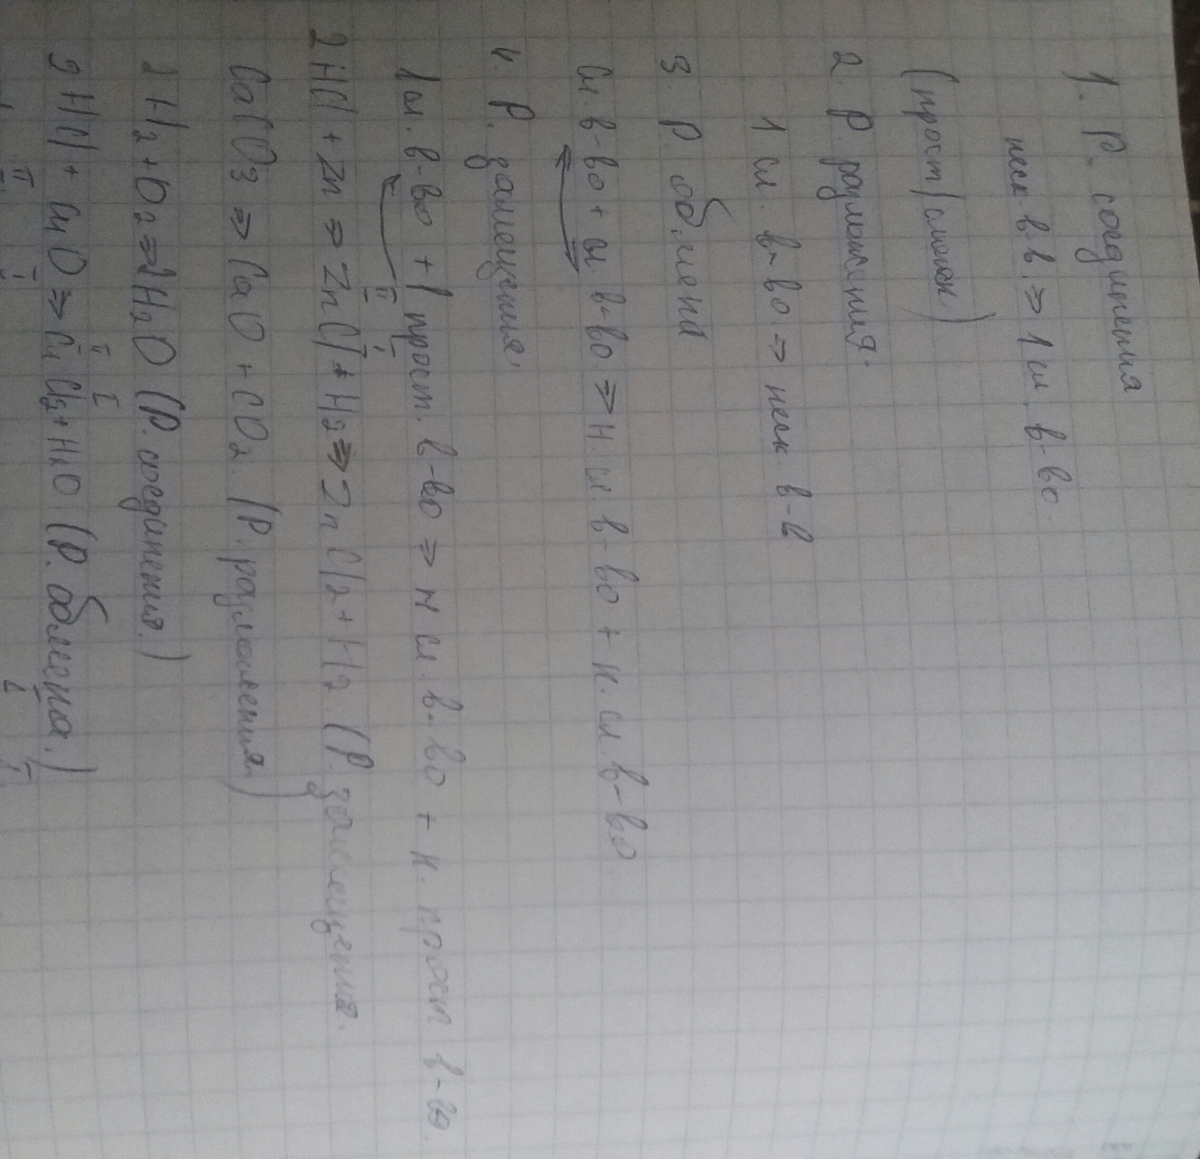 1. Р. соединения
неск. в в. => 1 сл. в-во.
(прост/сложн)
2 Р разложения.
1 сл. в-во => неск. в-в.
3. Р. обмена
Сл. в-во + сл. в-во => н. сл в-во + н. сл. в-во.
4. Р. замещения.
1 сл. в-во + 1 прост. в-во => н сл. в-во + н. прост в-во.
2HCl + Zn => ZnCl + H2 => ZnCl2 + H2 (Р. замещения.
CaCO3 => CaO + CO2. (Р. разложения)
2H2 + O2 => 2H2O (Р. соединения.)
2HCl + CuO => CuCl2 + H2O (Р. обмена.)